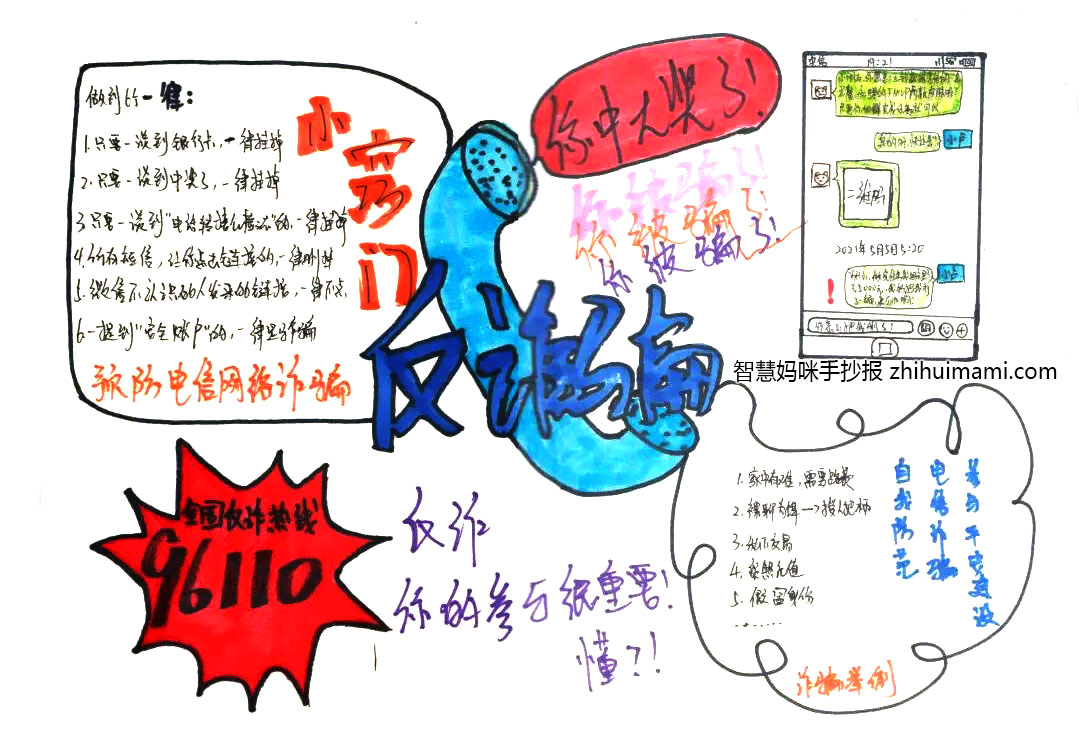 做到6个一律:
1.只要一谈到银行卡，一律挂掉
2.只要一谈到中奖了，一律挂掉
3.只要一谈到"电话转接公检法"的，一律挂掉
4.所有短信，让你点击链接的，一律删掉
5.微信不认识的人发来的链接，一律不点
6.一提到"安全账户"的，一律是诈骗
预防电信网络诈骗
小窍门
你中大奖了!
你被骗了!
你被骗了!
你被骗了!
反诈骗
19:21
5G
二维码
2021年5月5日 5:20
智慧妈咪手抄报 zhihuimami.com
全国反诈热线
96110
反诈
你的参与很重要!
懂?!
1.家中有难，需要
2.裸聊
3.私下交易
4.突然充值
5.假冒身份
.......
参与平安建设
电信诈骗
自我防范
诈骗举例